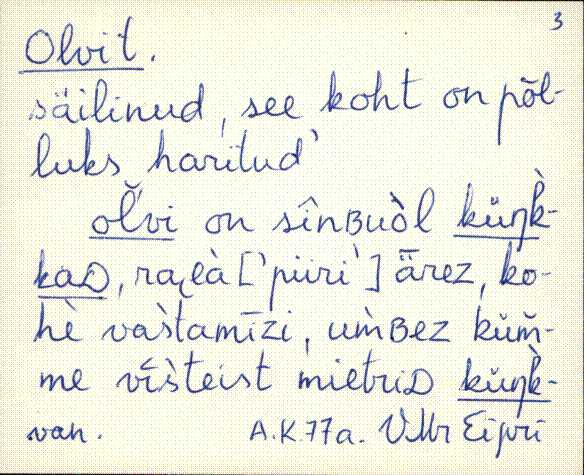 3
Olvit.
säilinud, see koht on põl-
luks haritud'
olvi on sînʙuòl küŋk̀-
kaᴅ, raɩ̯là ['piiri'] ǟrez, ko-
hè vas̀tamīzi, um̀ʙez küm̆-
me vīs̀teist mietriᴅ küŋk̀-
van. A.K. 77a. VMr Eipri